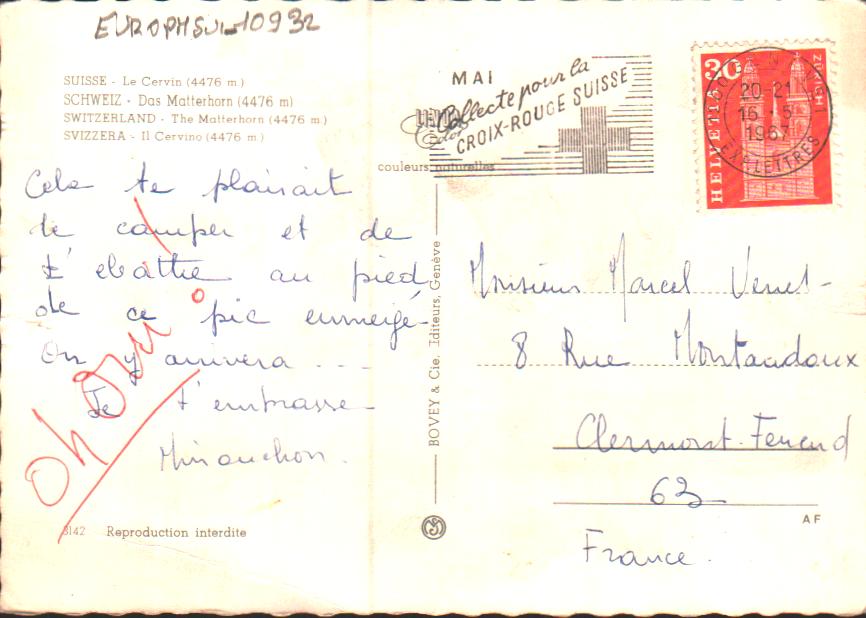 EUROPHSUI_10932
SUISSE - Le Cervin (4476 m.)
SCHWEIZ - Das Matterhorn (4476 m)
SWITZERLAND - The Matterhorn (4476 m.)
SVIZZERA - Il Cervino (4476 m.)
couleurs naturelles
MAI
Collecte pour la
CROIX-ROUGE SUISSE
30
HELVETIA
ZÜRICH
20-21
16.5.
1967
EXP. LETTRES
Cela te plairait
de camper et de
t'ebattre au pied
de ce pic enneigé-
On y arrivera ...
Je t'embrasse
Minouchon.
oh oui!
BOVEY & Cie. Editeurs, Genève
Monsieur Marcel Venet-
8 Rue Montaudoux
Clermont-Ferrand
63
France.
AF
3142 Reproduction interdite